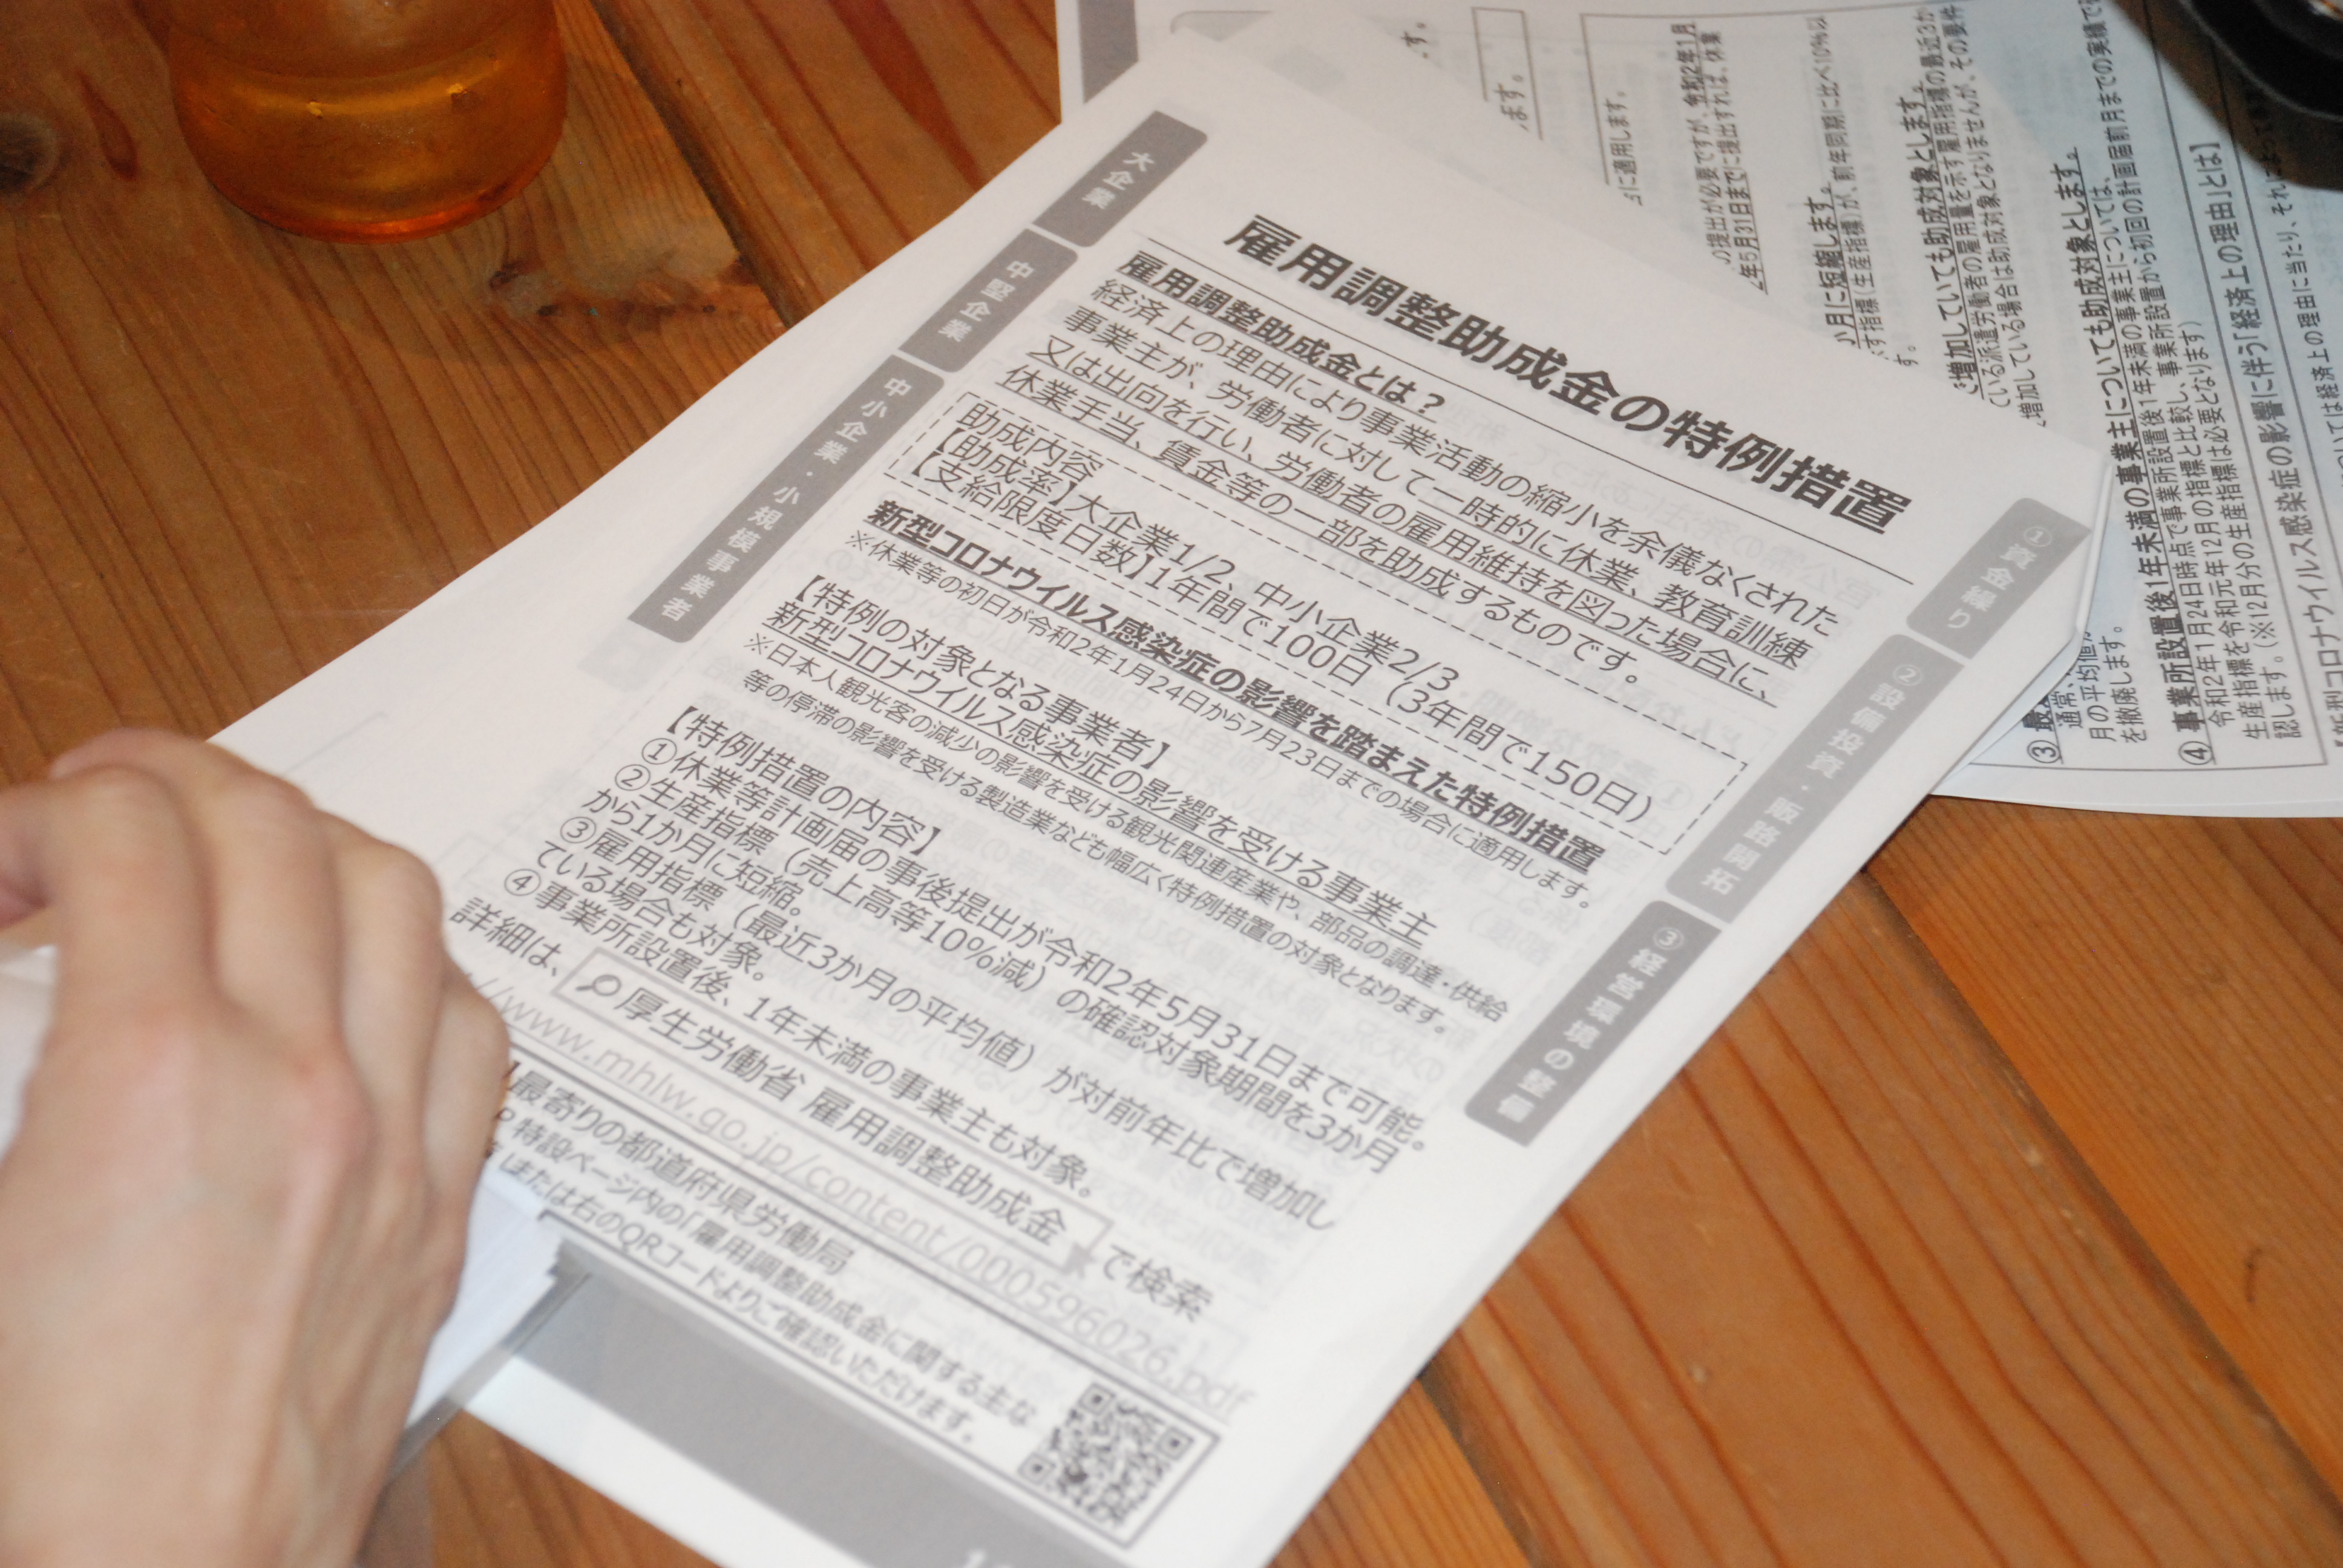 大企業
中堅企業
中小企業・小規模事業者
雇用調整助成金の特例措置
雇用調整助成金とは？
経済上の理由により事業活動の縮小を余儀なくされた
事業主が、労働者に対して一時的に休業、教育訓練
又は出向を行い、労働者の雇用維持を図った場合に、
休業手当、賃金等の一部を助成するものです。
助成内容
【助成率】大企業1/2、中小企業2/3
【支給限度日数】1年間で100日（3年間で150日）
新型コロナウイルス感染症の影響を踏まえた特例措置
※休業等の初日が令和2年1月24日から7月23日までの場合に適用します。
【特例の対象となる事業者】
新型コロナウイルス感染症の影響を受ける事業主
※日本人観光客の減少の影響を受ける観光関連産業や、部品の調達・供給
等の停滞の影響を受ける製造業なども幅広く特例措置の対象となります。
【特例措置の内容】
①休業等計画届の事後提出が令和2年5月31日まで可能。
②生産指標（売上高等10%減）の確認対象期間を3か月
から1か月に短縮。
③雇用指標（最近3か月の平均値）が対前年比で増加し
ている場合も対象。
④事業所設置後、1年未満の事業主も対象。
詳細は、 厚生労働省 雇用調整助成金 で検索
//www.mhlw.go.jp/content/000596026.pdf
最寄りの都道府県労働局
特設ページ内の「雇用調整助成金に関する主な
または右のQRコードよりご確認いただけます。
①資金繰り
②設備投資・販路開拓
③経営環境の整備
す。
ます。
に適用します。
の提出が必要ですが、令和2年1月
2年5月31日までに提出すれば、休業
か月に短縮します。
す指標（生産指標）が、前年同期に比べ10%以
す。
増加していても助成対象とします。
ている派遣労働者の雇用量を示す雇用指標の最近3か
増加している場合は助成対象となりませんが、その要件
③
通常、
月の平均値
を撤廃します。
④ 事業所設置後1年未満の事業主についても助成対象とします。
令和2年1月24日時点で事業所設置後1年未満の事業主については、
生産指標を令和元年12月の指標と比較し、事業所設置から初回の計画届前月までの実績で確
認します。（※12月分の生産指標は必要となります）
新型コロナウイルス感染症の影響に伴う「経済上の理由」とは】
ついては経済上の理由に当たり、それによって